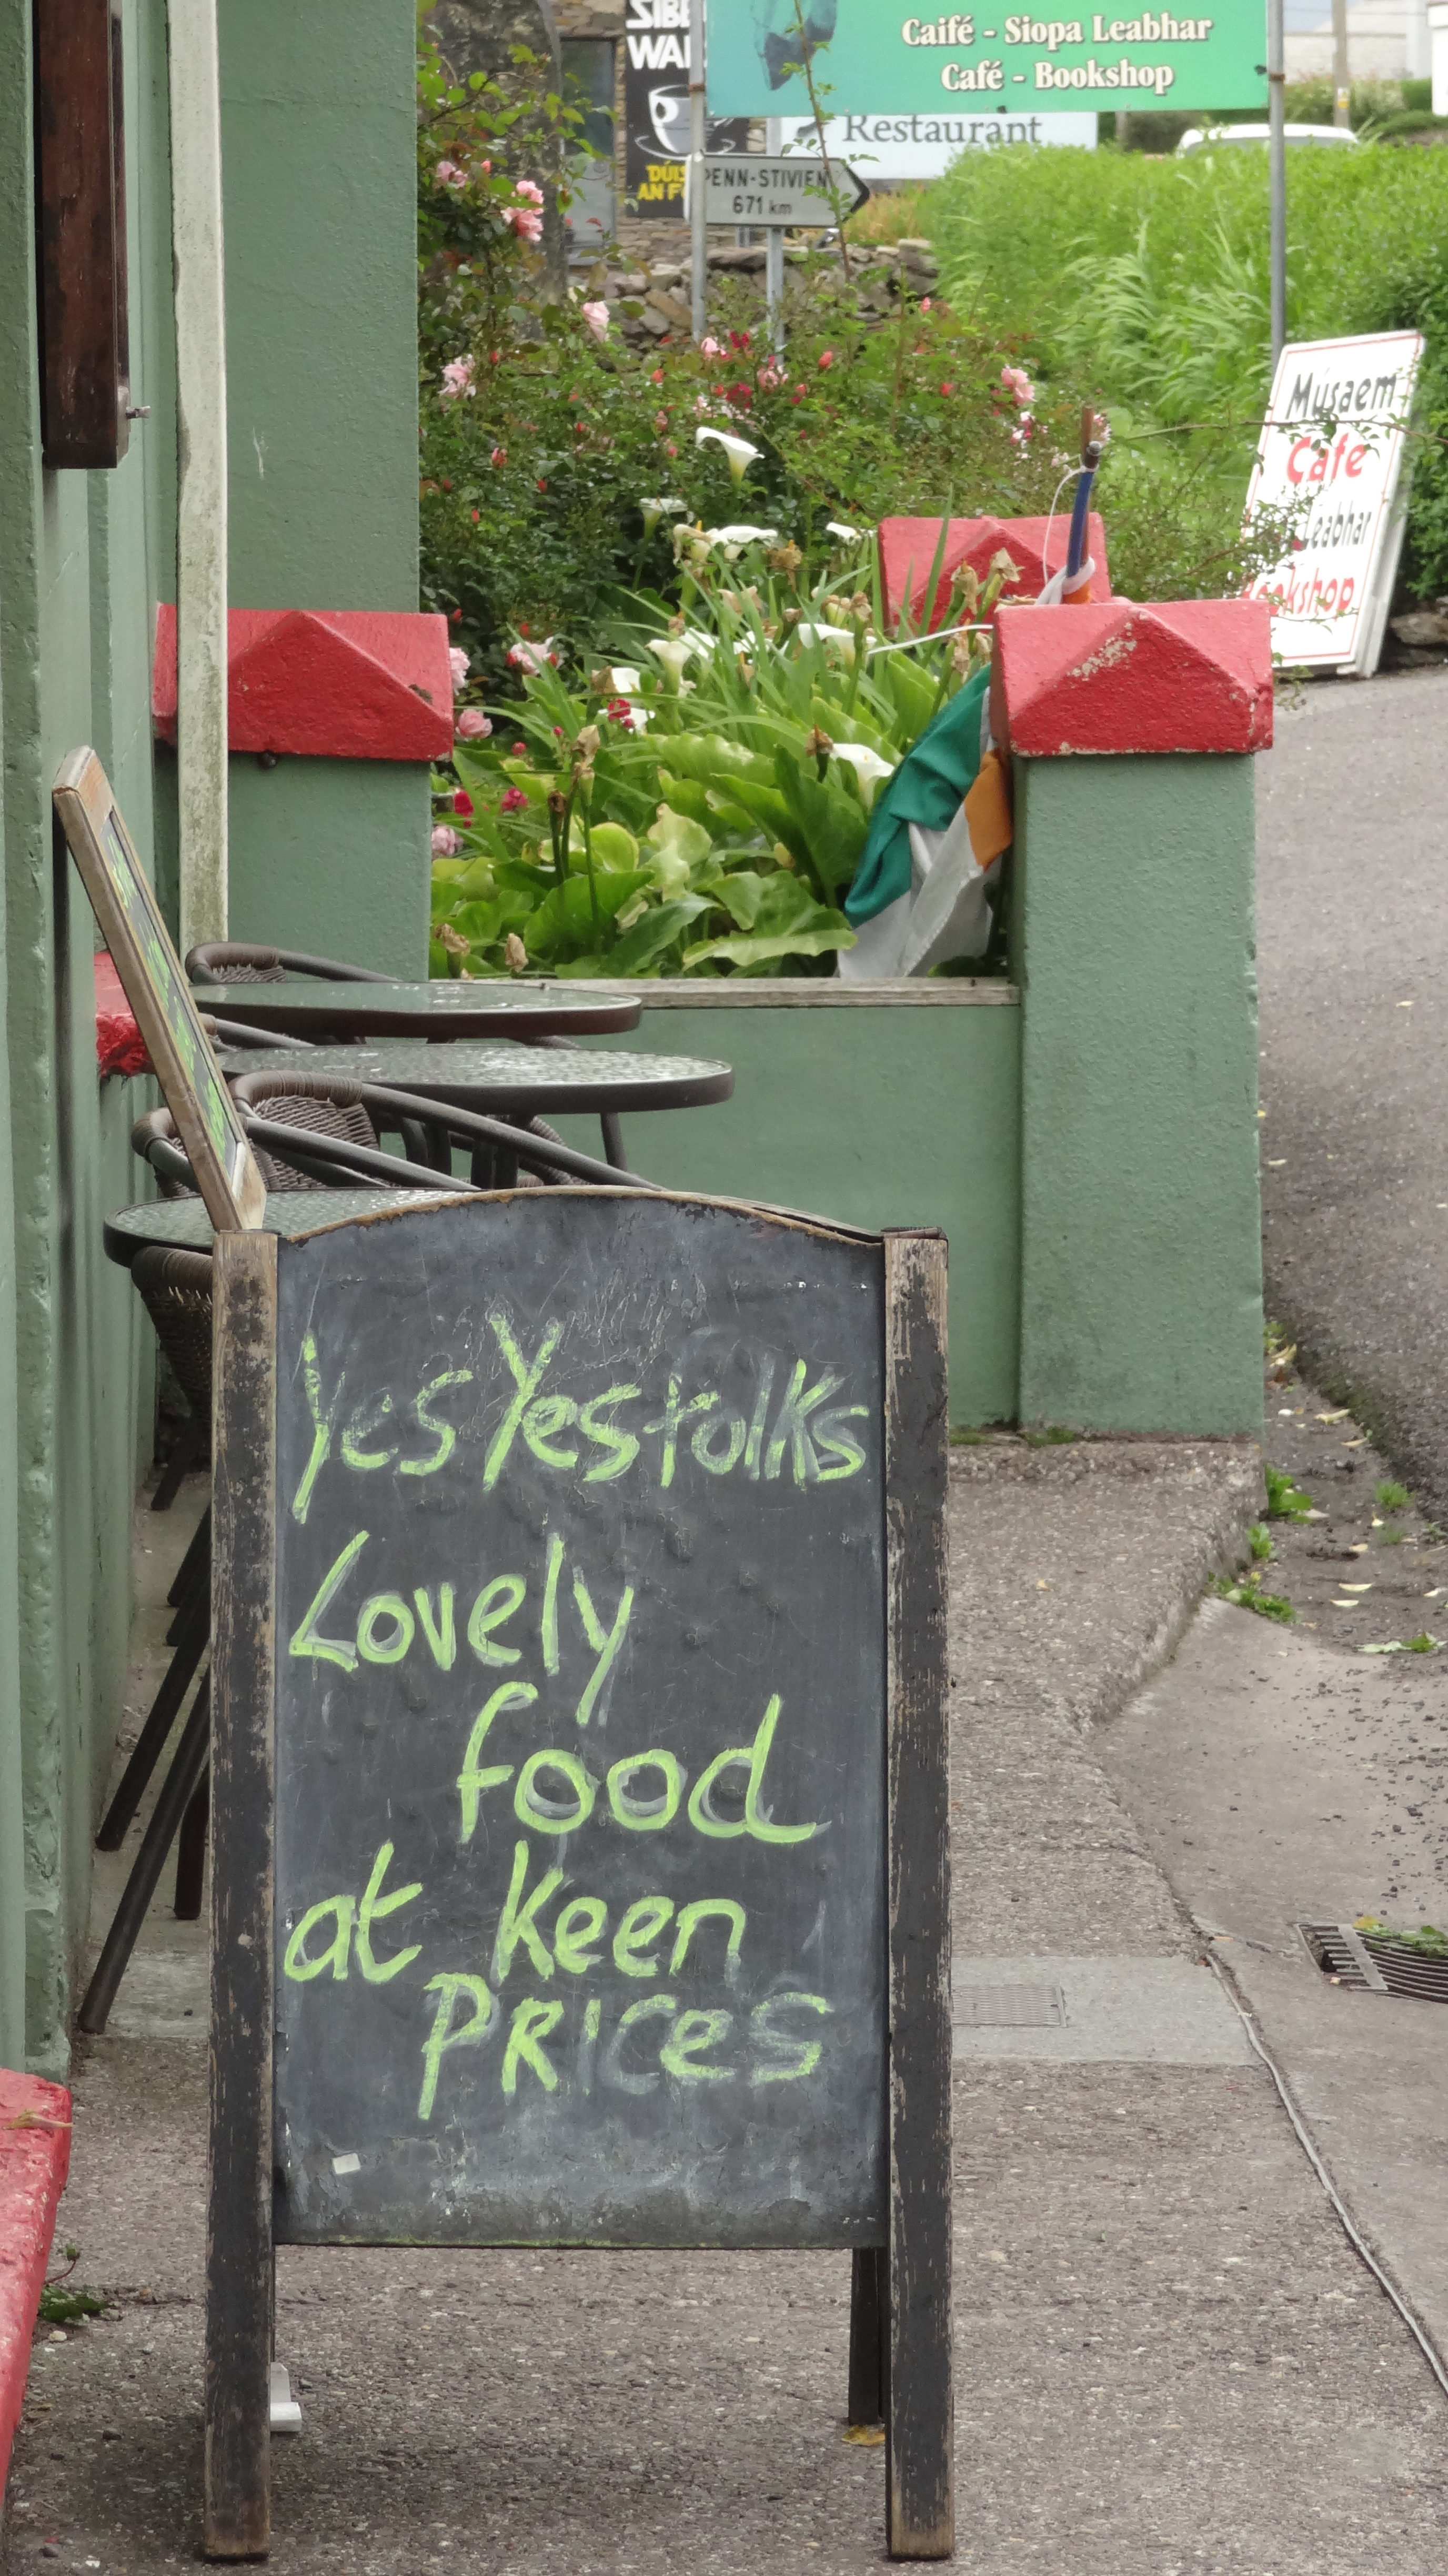 Caifé - Siopa Leabhar
Café - Bookshop
Restaurant
PENN-STIVIEN
671 km
Músaem
Cafe
Leabhar
Bookshop
Yes Yes folks
Lovely
food
at keen
PRices